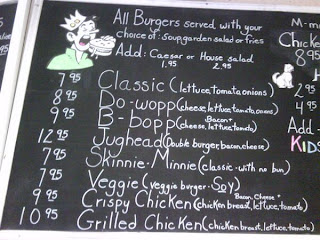 All Burgers served with your
choice of: Soup, garden salad or fries
Add: Caesar or House salad
1.95 2.95
7 95 Classic (lettuce, tomato, onions)
8 95 Do-wopp (cheese, lettuce, tomato, onions)
9 95 B-bopp (Bacon + cheese, lettuce, tomato)
12 95 Jughead (Double burger, bacon, cheese)
7 95 Skinnie-Minnie (classic-with no bun)
7 95 Veggie (veggie burger-Soy)
9 95 Crispy Chicken (chicken breast, Bacon, Cheese + lettuce, tomato)
10 95 Grilled Chicken (chicken breast, lettuce, tomato)
M
Chicke
8 95
H
2 95
4
Add-
KIDS